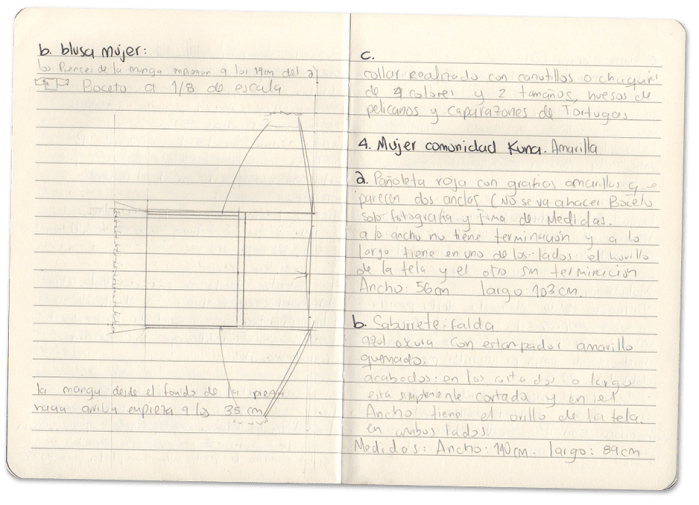 b. blusa mujer:
los Pences de la manga empiezan a los 19cm del a
Boceto a 1/8 de escala
la manga desde el fondo de la pieza
hacia arriba empieza a los 35 cm
c.
collar realizado con canutillos o chaquiri
de 4 colores y 2 tamaños, huesos de
pelicanos y caparazones de Tortugas
4. Mujer comunidad Kuna. Amarilla
a. Pañoleta roja con grafias amarillas que
parecen dos anclas (No se va a hacer Boceto
solo fotografia y toma de Medidas.
a lo ancho no tiene terminación y a lo
largo tiene en uno de los lados el horillo
de la tela y el otro sin terminación
Ancho: 56cm largo 103cm.
b. Saburrete: falda
azul oscura con estampados amarillo
quemado.
acabados: en los costados o largo
esta simplemente cortada y en el
Ancho tiene el orillo de la tela.
en ambos lados.
Medidas: Ancho: 140cm. largo: 89cm